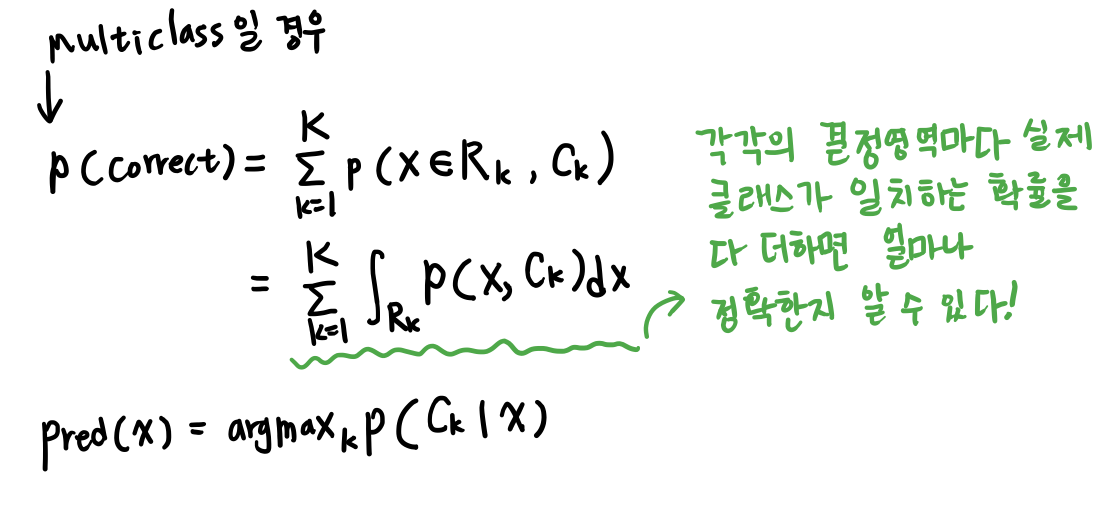 multiclass일 경우
↓
p(correct) = ∑_{k=1}^{K} p(x∈R_k, C_k)
= ∑_{k=1}^{K} ∫_{R_k} p(x, C_k)dx
각각의 결정영역마다 실제
클래스가 일치하는 확률을
다 더하면 얼마나
정확한지 알 수 있다!
pred(x) = argmax_k p(C_k|x)